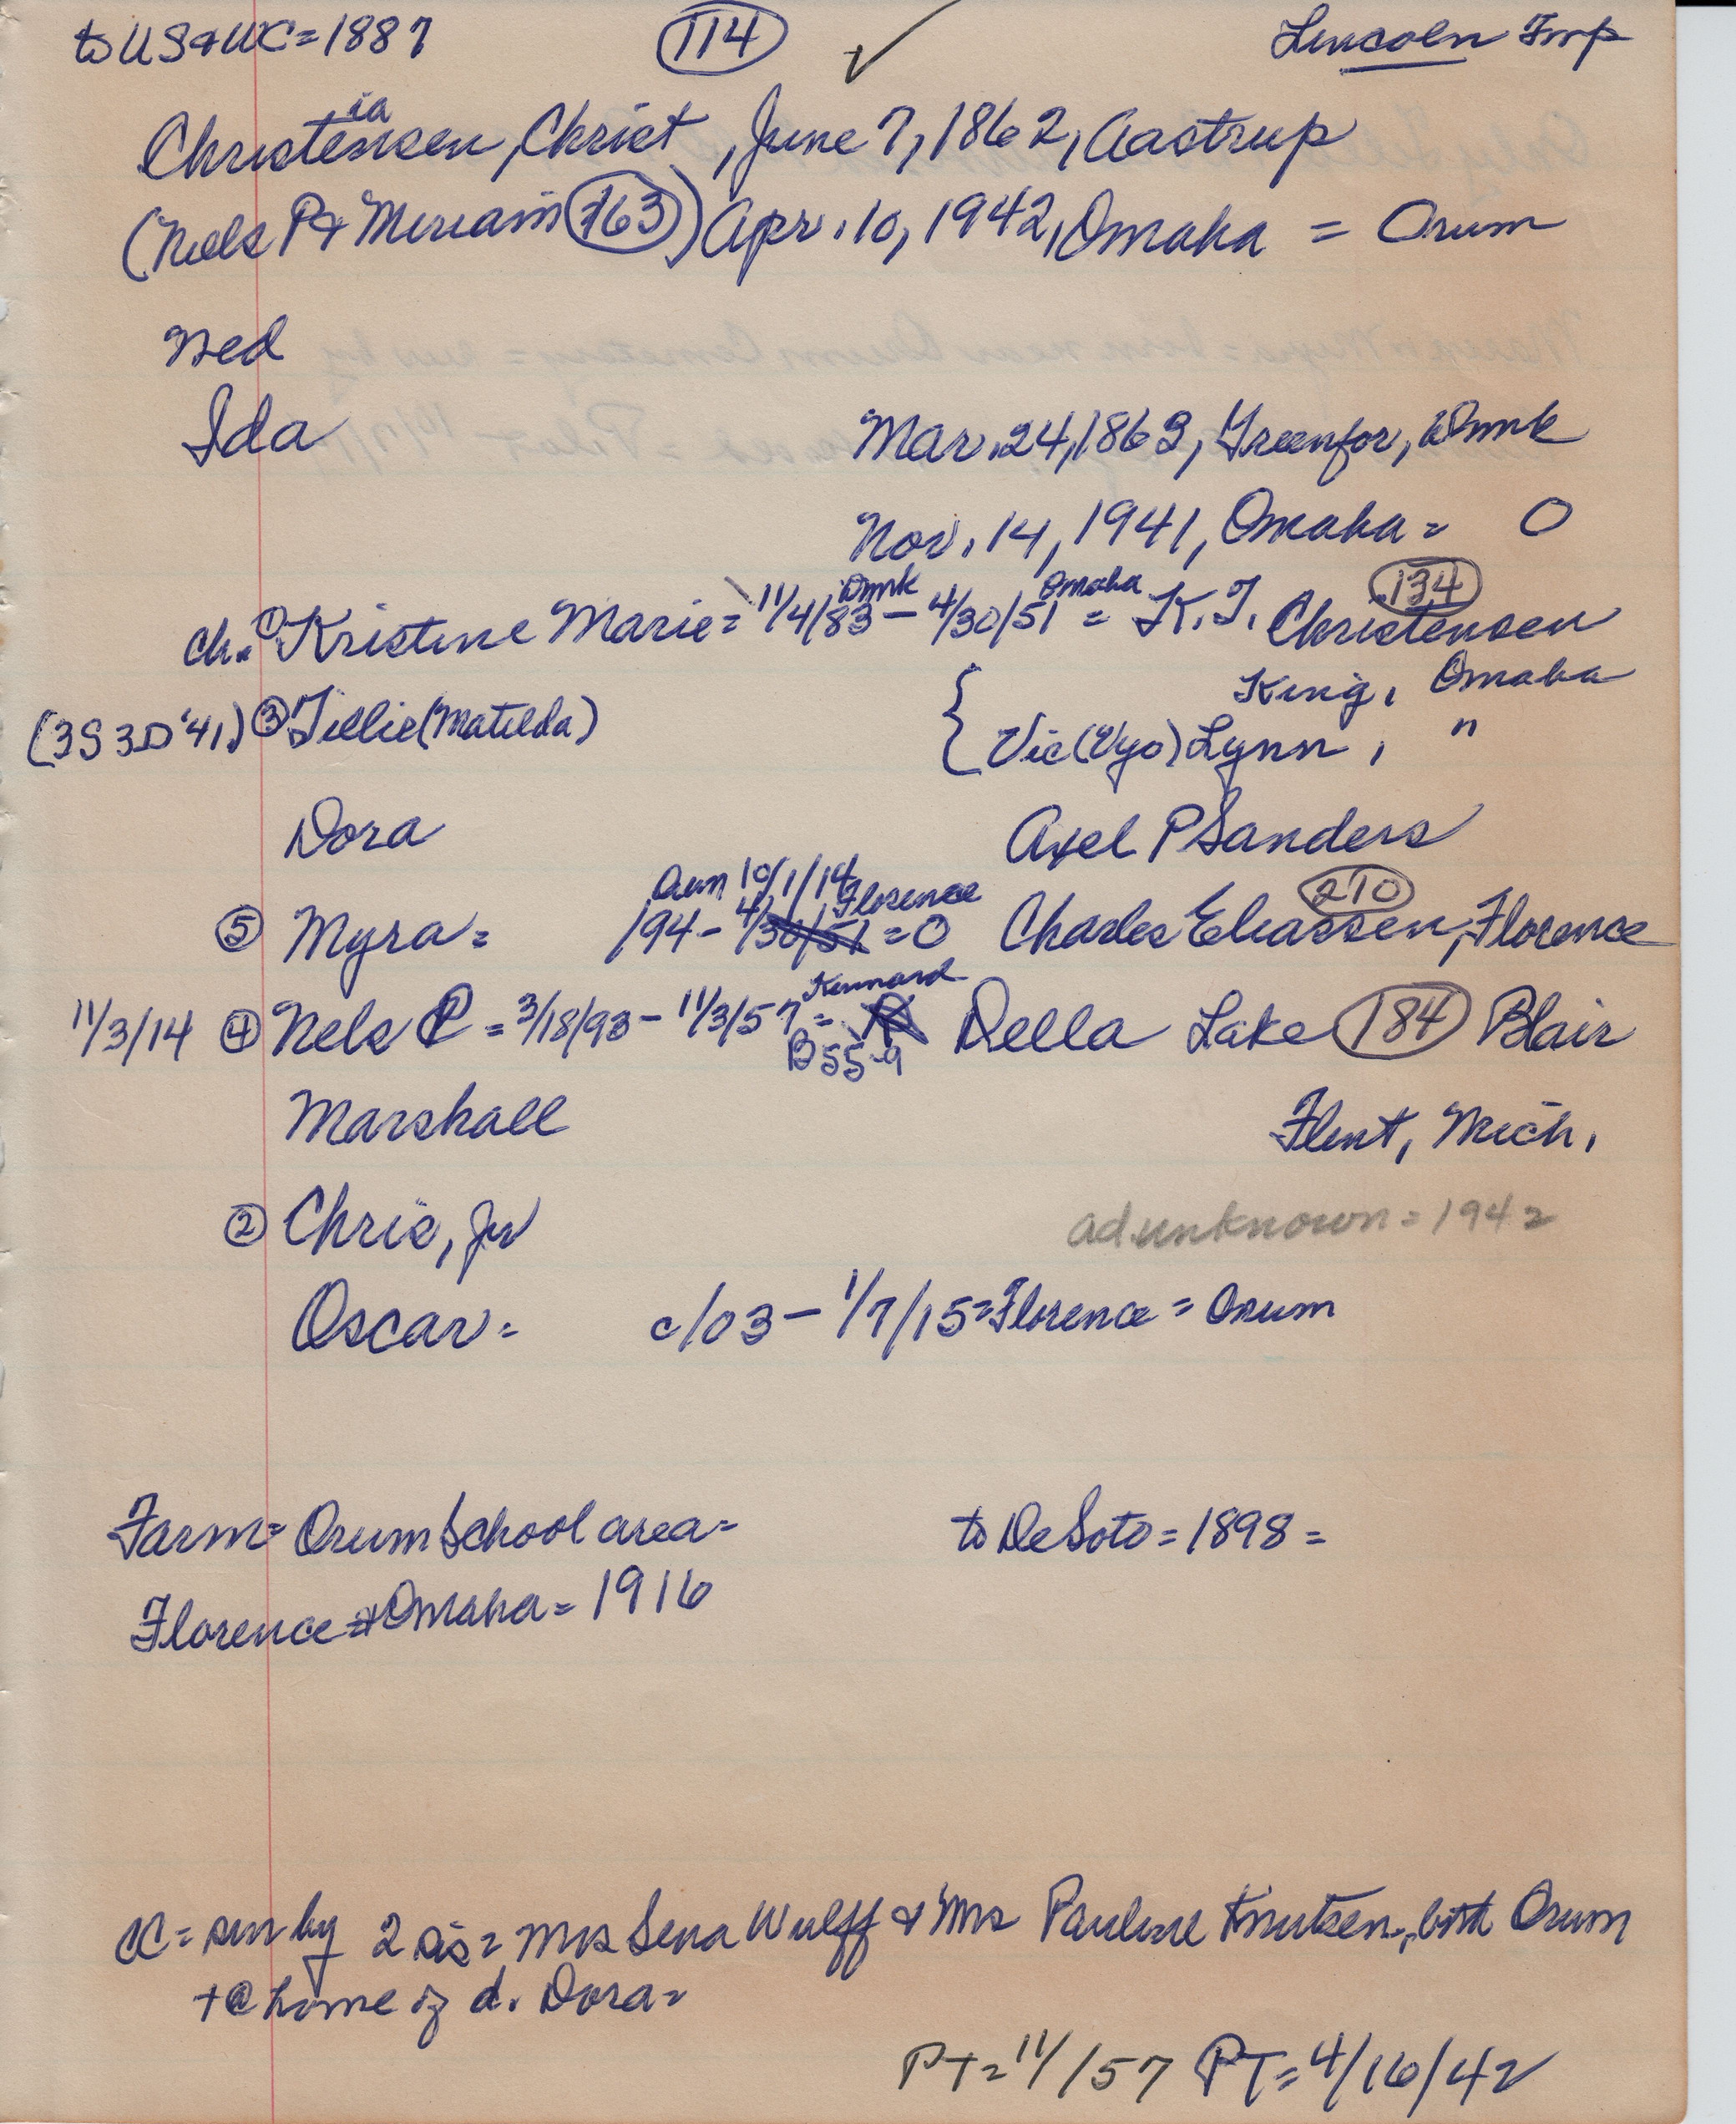 to US & WC = 1887 114 ✓ Lincoln Twp
ia
Christensen, Christ, June 7, 1862, Aastrup
(Neels P & Meriam 763) Apr. 10, 1942, Omaha = Orum
Ned
Ida
Mar. 24, 1863, Greenfor, Dmk
Nov. 14, 1941, Omaha = O
Dmk Omaha 134
ch. ① Kristine Marie = 11/4/83 - 4/30/51 = K. T. Christensen
King, Omaha
(3S 3D '41) ③ Tillie (Matilda) { Vic (Vyo) Lynn, "
Dora Axel P Sanders
10/1/14 Florence 210
⑤ Myra = 194 - 4/30/51 = O Charles Eliassen, Florence
Kennard
11/3/14 ④ Nels P = 3/18/93 - 11/3/57 = Della Lake 184 Blair
B55-9
Marshall Flint, Mich.
② Chris, Jr ad unknown = 1942
Oscar = c/03 - 1/7/15 = Florence = Orum
Farm = Orum School area = to DeSoto = 1898 =
Florence & Omaha = 1916
CC = sur by 2 sis = Mrs Sena Wulff & Mrs Pauline Knutsen, both Orum
+ @ home of d. Dora =
PT = 11/57 PT = 4/16/42